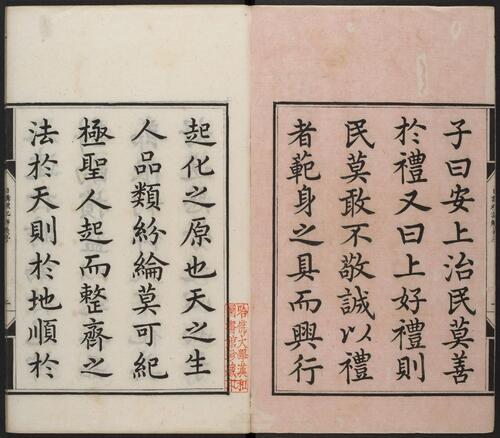 子曰安上治民莫善
於禮又曰上好禮則
民莫敢不敬誠以禮
者範身之具而興行
起化之原也天之生
人品類紛綸莫可紀
極聖人起而整齊之
法於天則於地順於
哈佛大學漢和
圖書館珍藏印